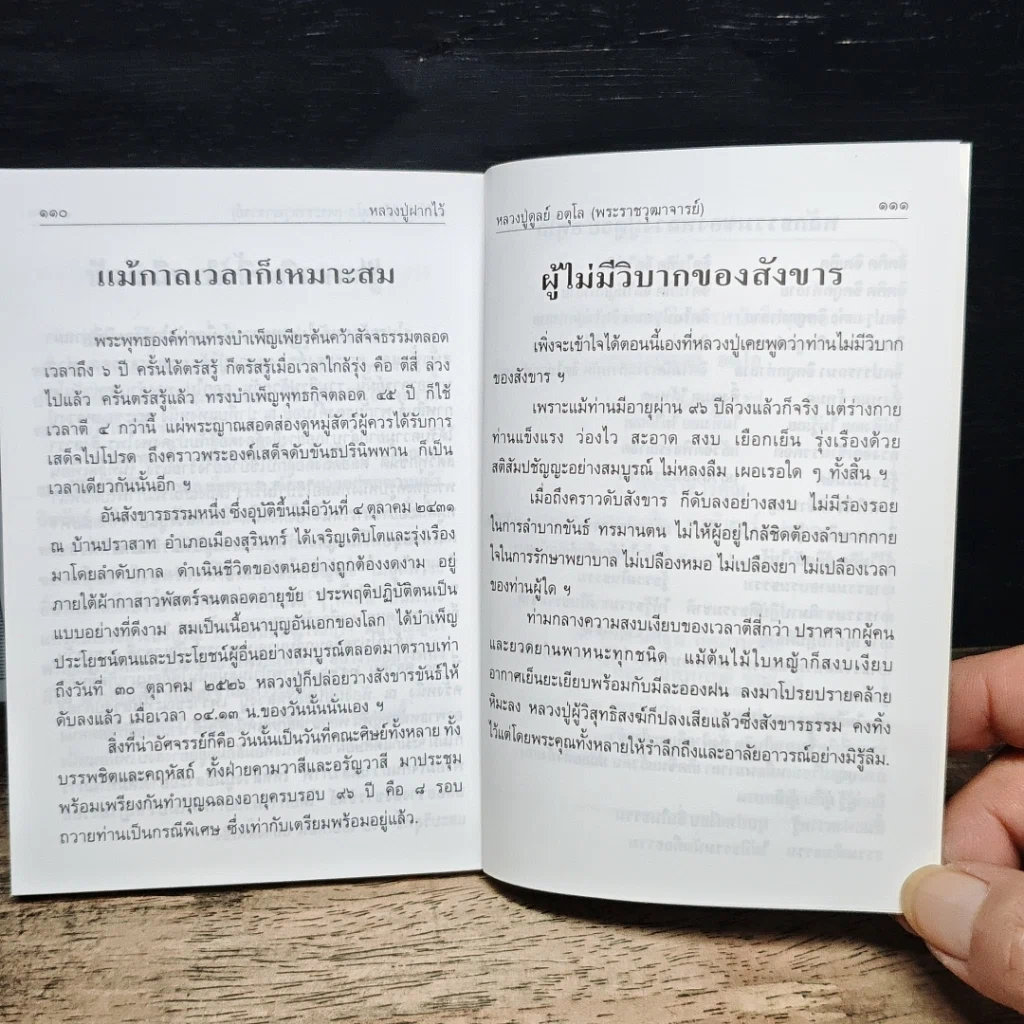 ๑๑๐ หลวงปู่ฝากไว้
แม้กาลเวลาก็เหมาะสม
พระพุทธองค์ท่านทรงบำเพ็ญเพียรค้นคว้าสัจจธรรมตลอด
เวลาถึง ๖ ปี ครั้นได้ตรัสรู้ ก็ตรัสรู้เมื่อเวลาใกล้รุ่ง คือ ตีสี่ ล่วง
ไปแล้ว ครั้นตรัสรู้แล้ว ทรงบำเพ็ญพุทธกิจตลอด ๔๕ ปี ก็ใช้
เวลาตี ๔ กว่านี้ แผ่พระญาณสอดส่องดูหมู่สัตว์ผู้ควรได้รับการ
เสด็จไปโปรด ถึงคราวพระองค์เสด็จดับขันธปรินิพพาน ก็เป็น
เวลาเดียวกันนั้นอีก ฯ
อันสังขารธรรมหนึ่ง ซึ่งอุบัติขึ้นเมื่อวันที่ ๔ ตุลาคม ๒๔๓๑
ณ บ้านปราสาท อำเภอเมืองสุรินทร์ ได้เจริญเติบโตและรุ่งเรือง
มาโดยลำดับกาล ดำเนินชีวิตของตนอย่างถูกต้องงดงาม อยู่
ภายใต้ผ้ากาสาวพัสตร์จนตลอดอายุขัย ประพฤติปฏิบัติตนเป็น
แบบอย่างที่ดีงาม สมเป็นเนื้อนาบุญอันเอกของโลก ได้บำเพ็ญ
ประโยชน์ตนและประโยชน์ผู้อื่นอย่างสมบูรณ์ตลอดมาตราบเท่า
ถึงวันที่ ๓๐ ตุลาคม ๒๕๒๖ หลวงปู่ก็ปล่อยวางสังขารขันธ์ให้
ดับลงแล้ว เมื่อเวลา ๐๔.๑๓ น.ของวันนั้นนั่นเอง ฯ
สิ่งที่น่าอัศจรรย์ก็คือ วันนั้นเป็นวันที่คณะศิษย์ทั้งหลาย ทั้ง
บรรพชิตและคฤหัสถ์ ทั้งฝ่ายคามวาสีและอรัญวาสี มาประชุม
พร้อมเพรียงกันทำบุญฉลองอายุครบรอบ ๙๖ ปี คือ ๘ รอบ
ถวายท่านเป็นกรณีพิเศษ ซึ่งเท่ากับเตรียมพร้อมอยู่แล้ว.
หลวงปู่ดูลย์ อตุโล (พระราชวุฒาจารย์) ๑๑๑
ผู้ไม่มีวิบากของสังขาร
เพิ่งจะเข้าใจได้ตอนนี้เองที่หลวงปู่เคยพูดว่าท่านไม่มีวิบาก
ของสังขาร ฯ
เพราะแม้ท่านมีอายุผ่าน ๙๖ ปีล่วงแล้วก็จริง แต่ร่างกาย
ท่านแข็งแรง ว่องไว สะอาด สงบ เยือกเย็น รุ่งเรืองด้วย
สติสัมปชัญญะอย่างสมบูรณ์ ไม่หลงลืม เผอเรอใด ๆ ทั้งสิ้น ฯ
เมื่อถึงคราวดับสังขาร ก็ดับลงอย่างสงบ ไม่มีร่องรอย
ในการลำบากขันธ์ ทรมานตน ไม่ให้ผู้อยู่ใกล้ชิดต้องลำบากกาย
ใจในการรักษาพยาบาล ไม่เปลืองหมอ ไม่เปลืองยา ไม่เปลืองเวลา
ของท่านผู้ใด ฯ
ท่ามกลางความสงบเงียบของเวลาตีสี่กว่า ปราศจากผู้คน
และยวดยานพาหนะทุกชนิด แม้ต้นไม้ใบหญ้าก็สงบเงียบ
อากาศเย็นยะเยียบพร้อมกับมีละอองฝน ลงมาโปรยปรายคล้าย
หิมะลง หลวงปู่ผู้วิสุทธิสงฆ์ก็ปลงเสียแล้วซึ่งสังขารธรรม คงทิ้ง
ไว้แต่โดยพระคุณทั้งหลายให้รำลึกถึงและอาลัยอาวรณ์อย่างมิรู้ลืม.